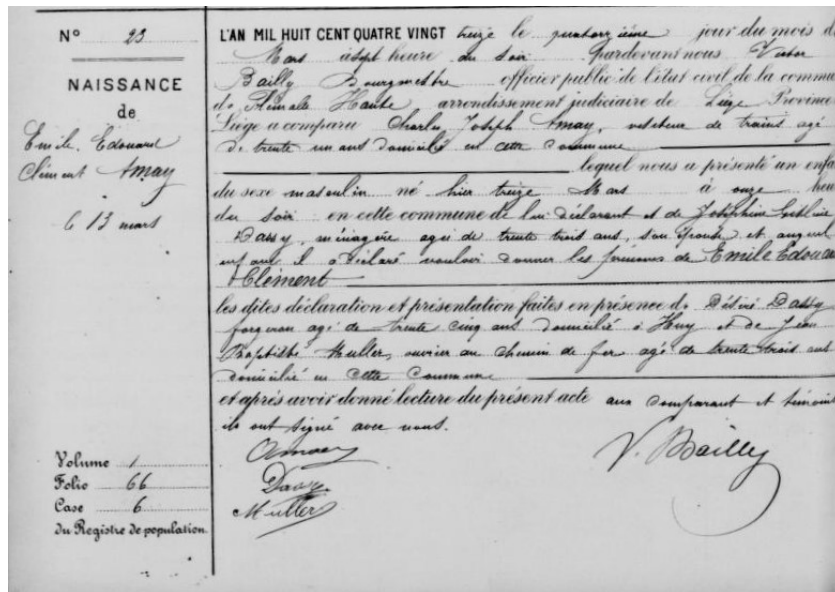 N° 23
NAISSANCE
de
Emile, Edouard
Clément Amay
le 13 mars
Volume 1
Folio 66
Case 6
du Registre de population.
L'AN MIL HUIT CENT QUATRE VINGT treize le quatorzième jour du mois d
Mars à sept heure du soir pardevant nous Victor
Bailly Bourgmestre officier public de l'état civil de la commu
de Haute, arrondissement judiciaire de Liége Provinc
Liége a comparu Charles Joseph Amay, visiteur de trains agé
de trente un ans domicilié en cette commune
lequel nous a présenté un enfa
du sexe masculin né hier treize Mars à onze heu
du soir en cette commune de lui déclarant et de Joséphine
Dassy, ménagère agée de trente trois ans, son épouse et auquel
enfant il a déclaré vouloir donner les prénoms de Emile Edoua
Clément
les dites déclaration et présentation faites en présence de Désiré Dassy
forgeron agé de trente cinq ans domicilié à Huy et de Jean
Baptiste Muller, ouvrier au chemin de fer agé de trente trois ans
domicilié en cette Commune
et après avoir donné lecture du présent acte aux comparant et témoins
ils ont signé avec nous.
Amay
V. Bailly
Dassy
Muller